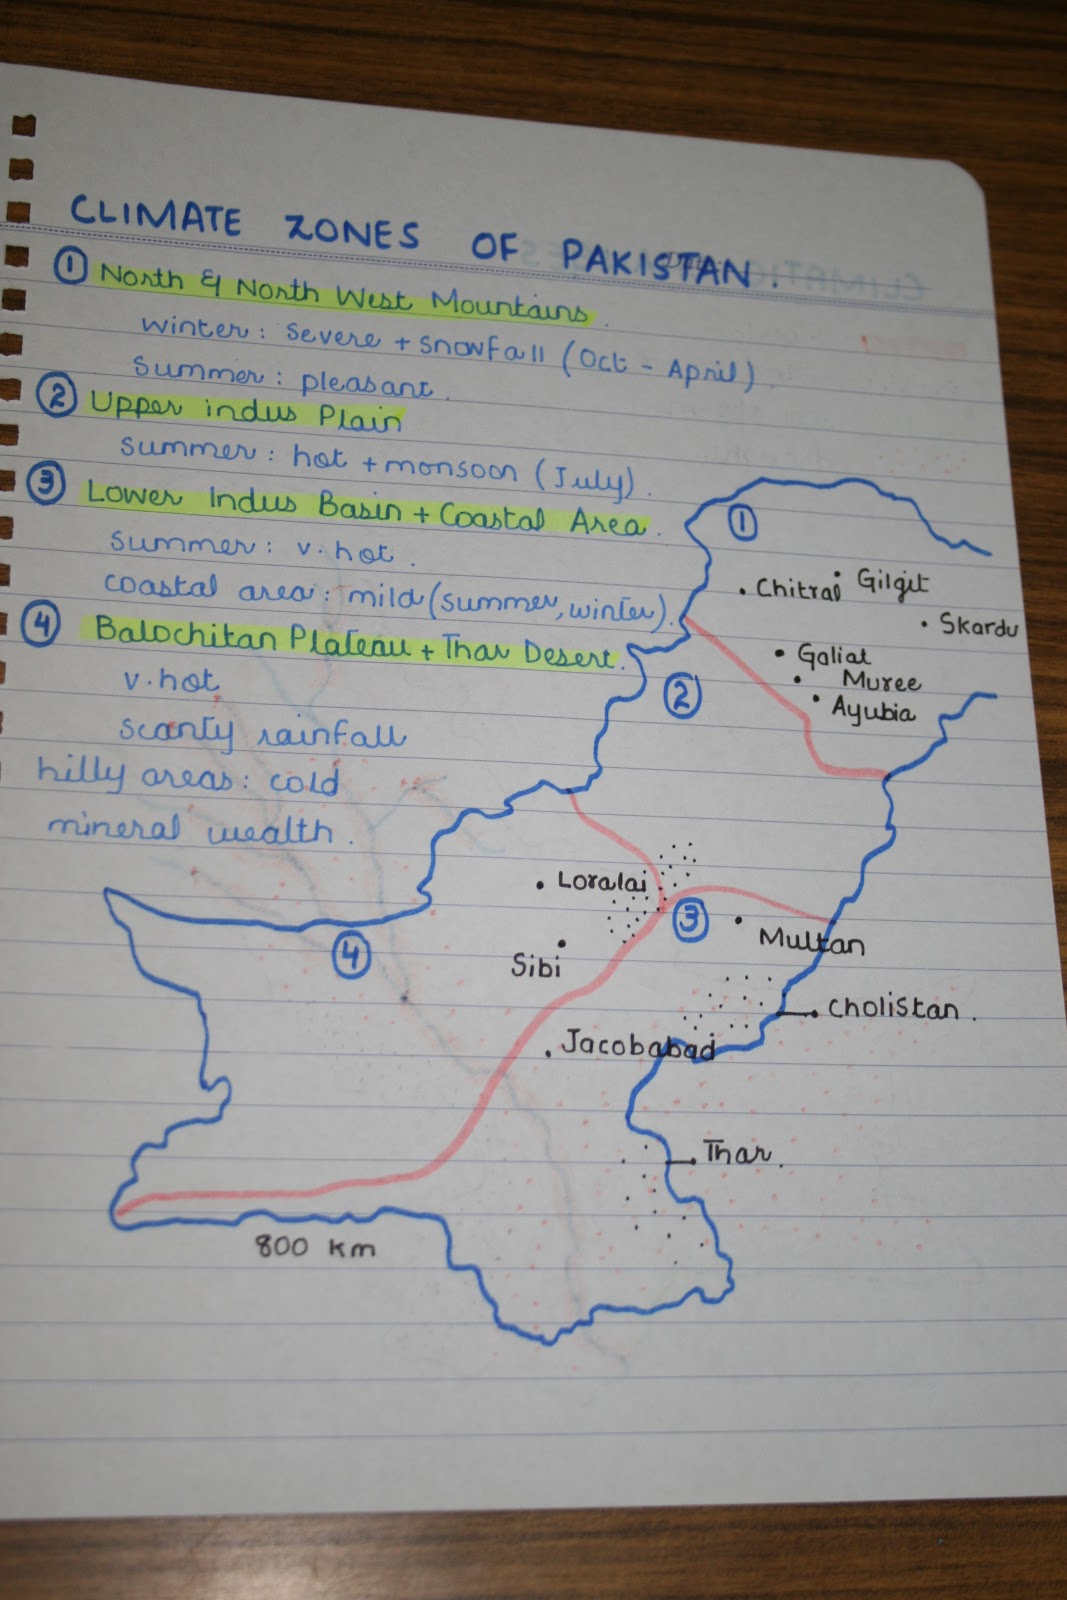 CLIMATE ZONES OF PAKISTAN.
① North & North West Mountains.
winter: severe + snowfall (Oct - April).
summer: pleasant.
② Upper indus Plain
summer: hot + monsoon (July).
③ Lower Indus Basin + Coastal Area.
summer: v.hot.
coastal area: mild (summer, winter).
④ Balochitan Plateau + Thar Desert.
v.hot
scanty rainfall
hilly areas: cold
mineral wealth.
①
Chitral
Gilgit
Skardu
Galiat
Muree
Ayubia
②
Loralai
③
Multan
④
Sibi
Cholistan.
Jacobabad
Thar.
800 km